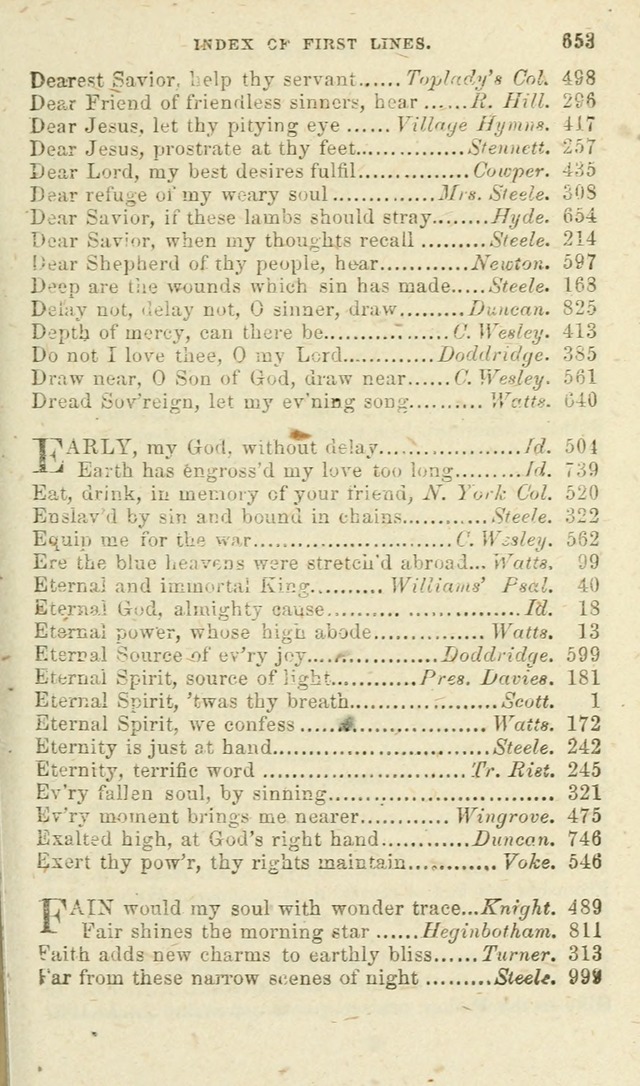 INDEX OF FIRST LINES. 653
Dearest Savior, help thy servant......Toplady's Col. 498
Dear Friend of friendless sinners, hear ......R. Hill. 296
Dear Jesus, let thy pitying eye ......Village Hymns. 417
Dear Jesus, prostrate at thy feet..............Stennett. 257
Dear Lord, my best desires fulfil..............Cowper. 435
Dear refuge of my weary soul ..............Mrs. Steele. 308
Dear Savior, if these lambs should stray........Hyde. 654
Dear Savior, when my thoughts recall ..........Steele. 214
Dear Shepherd of thy people, hear............Newton. 597
Deep are the wounds which sin has made.....Steele. 168
Delay not, delay not, O sinner, draw..........Duncan. 825
Depth of mercy, can there be..................C. Wesley. 413
Do not I love thee, O my Lord............Doddridge. 385
Draw near, O Son of God, draw near......C. Wesley. 561
Dread Sov'reign, let my ev'ning song..........Watts. 640
EARLY, my God, without delay....................Id. 504
Earth has engross'd my love too long..........Id. 739
Eat, drink, in memory of your friend, N. York Col. 520
Enslav'd by sin and bound in chains............Steele. 322
Equip me for the war............................C. Wesley. 562
Ere the blue heavens were stretch'd abroad... Watts. 99
Eternal and immortal King.......... Williams' Psal. 40
Eternal God, almighty cause..........................Id. 18
Eternal power, whose high abode................Watts. 13
Eternal Source of ev'ry joy..................Doddridge. 599
Eternal Spirit, source of light............Pres. Davies. 181
Eternal Spirit, 'twas thy breath....................Scott. 1
Eternal Spirit, we confess ..........................Watts. 172
Eternity is just at hand..............................Steele. 242
Eternity, terrific word ............................Tr. Rist. 245
Ev'ry fallen soul, by sinning.............................. 321
Ev'ry moment brings me nearer............ Wingrove. 475
Exalted high, at God's right hand............Duncan. 746
Exert thy pow'r, thy rights maintain............ Voke. 546
FAIN would my soul with wonder trace...Knight. 489
Fair shines the morning star ......Heginbotham. 811
Faith adds new charms to earthly bliss......Turner. 313
Far from these narrow scenes of night .........Steele. 999